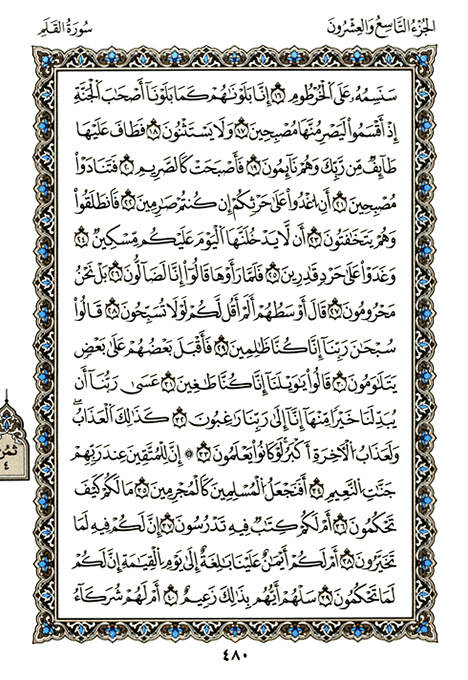 الجُزْءُ التَّاسِعُ وَالعِشْرُونَ
سُورَةُ القَلَمِ
سَنَسِمُهُۥ عَلَى ٱلْخُرْطُومِ ١٦ إِنَّا بَلَوْنَٰهُمْ كَمَا بَلَوْنَآ أَصْحَٰبَ ٱلْجَنَّةِ
إِذْ أَقْسَمُوا۟ لَيَصْرِمُنَّهَا مُصْبِحِينَ ١٧ وَلَا يَسْتَثْنُونَ ١٨ فَطَافَ عَلَيْهَا
طَآئِفٌ مِّن رَّبِّكَ وَهُمْ نَآئِمُونَ ١٩ فَأَصْبَحَتْ كَٱلصَّرِيمِ ٢٠ فَتَنَادَوْا۟
مُصْبِحِينَ ٢١ أَنِ ٱغْدُوا۟ عَلَىٰ حَرْثِكُمْ إِن كُنتُمْ صَٰرِمِينَ ٢٢ فَٱنطَلَقُوا۟
وَهُمْ يَتَخَٰفَتُونَ ٢٣ أَن لَّا يَدْخُلَنَّهَا ٱلْيَوْمَ عَلَيْكُم مِّسْكِينٌ ٢٤
وَغَدَوْا۟ عَلَىٰ حَرْدٍ قَٰدِرِينَ ٢٥ فَلَمَّا رَأَوْهَا قَالُوٓا۟ إِنَّا لَضَآلُّونَ ٢٦ بَلْ نَحْنُ
مَحْرُومُونَ ٢٧ قَالَ أَوْسَطُهُمْ أَلَمْ أَقُل لَّكُمْ لَوْلَا تُسَبِّحُونَ ٢٨ قَالُوا۟
سُبْحَٰنَ رَبِّنَآ إِنَّا كُنَّا ظَٰلِمِينَ ٢٩ فَأَقْبَلَ بَعْضُهُمْ عَلَىٰ بَعْضٍ
يَتَلَٰوَمُونَ ٣٠ قَالُوا۟ يَٰوَيْلَنَآ إِنَّا كُنَّا طَٰغِينَ ٣١ عَسَىٰ رَبُّنَآ أَن
يُبْدِلَنَا خَيْرًا مِّنْهَآ إِنَّآ إِلَىٰ رَبِّنَا رَٰغِبُونَ ٣٢ كَذَٰلِكَ ٱلْعَذَابُ ۖ
وَلَعَذَابُ ٱلْءَاخِرَةِ أَكْبَرُ ۚ لَوْ كَانُوا۟ يَعْلَمُونَ ٣٣ ۞ إِنَّ لِلْمُتَّقِينَ عِندَ رَبِّهِمْ
جَنَّٰتِ ٱلنَّعِيمِ ٣٤ أَفَنَجْعَلُ ٱلْمُسْلِمِينَ كَٱلْمُجْرِمِينَ ٣٥ مَا لَكُمْ كَيْفَ
تَحْكُمُونَ ٣٦ أَمْ لَكُمْ كِتَٰبٌ فِيهِ تَدْرُسُونَ ٣٧ إِنَّ لَكُمْ فِيهِ لَمَا
تَخَيَّرُونَ ٣٨ أَمْ لَكُمْ أَيْمَٰنٌ عَلَيْنَا بَٰلِغَةٌ إِلَىٰ يَوْمِ ٱلْقِيَٰمَةِ ۙ إِنَّ لَكُمْ
لَمَا تَحْكُمُونَ ٣٩ سَلْهُمْ أَيُّهُم بِذَٰلِكَ زَعِيمٌ ٤٠ أَمْ لَهُمْ شُرَكَآءُ
ثمن
٤
٤٨٠